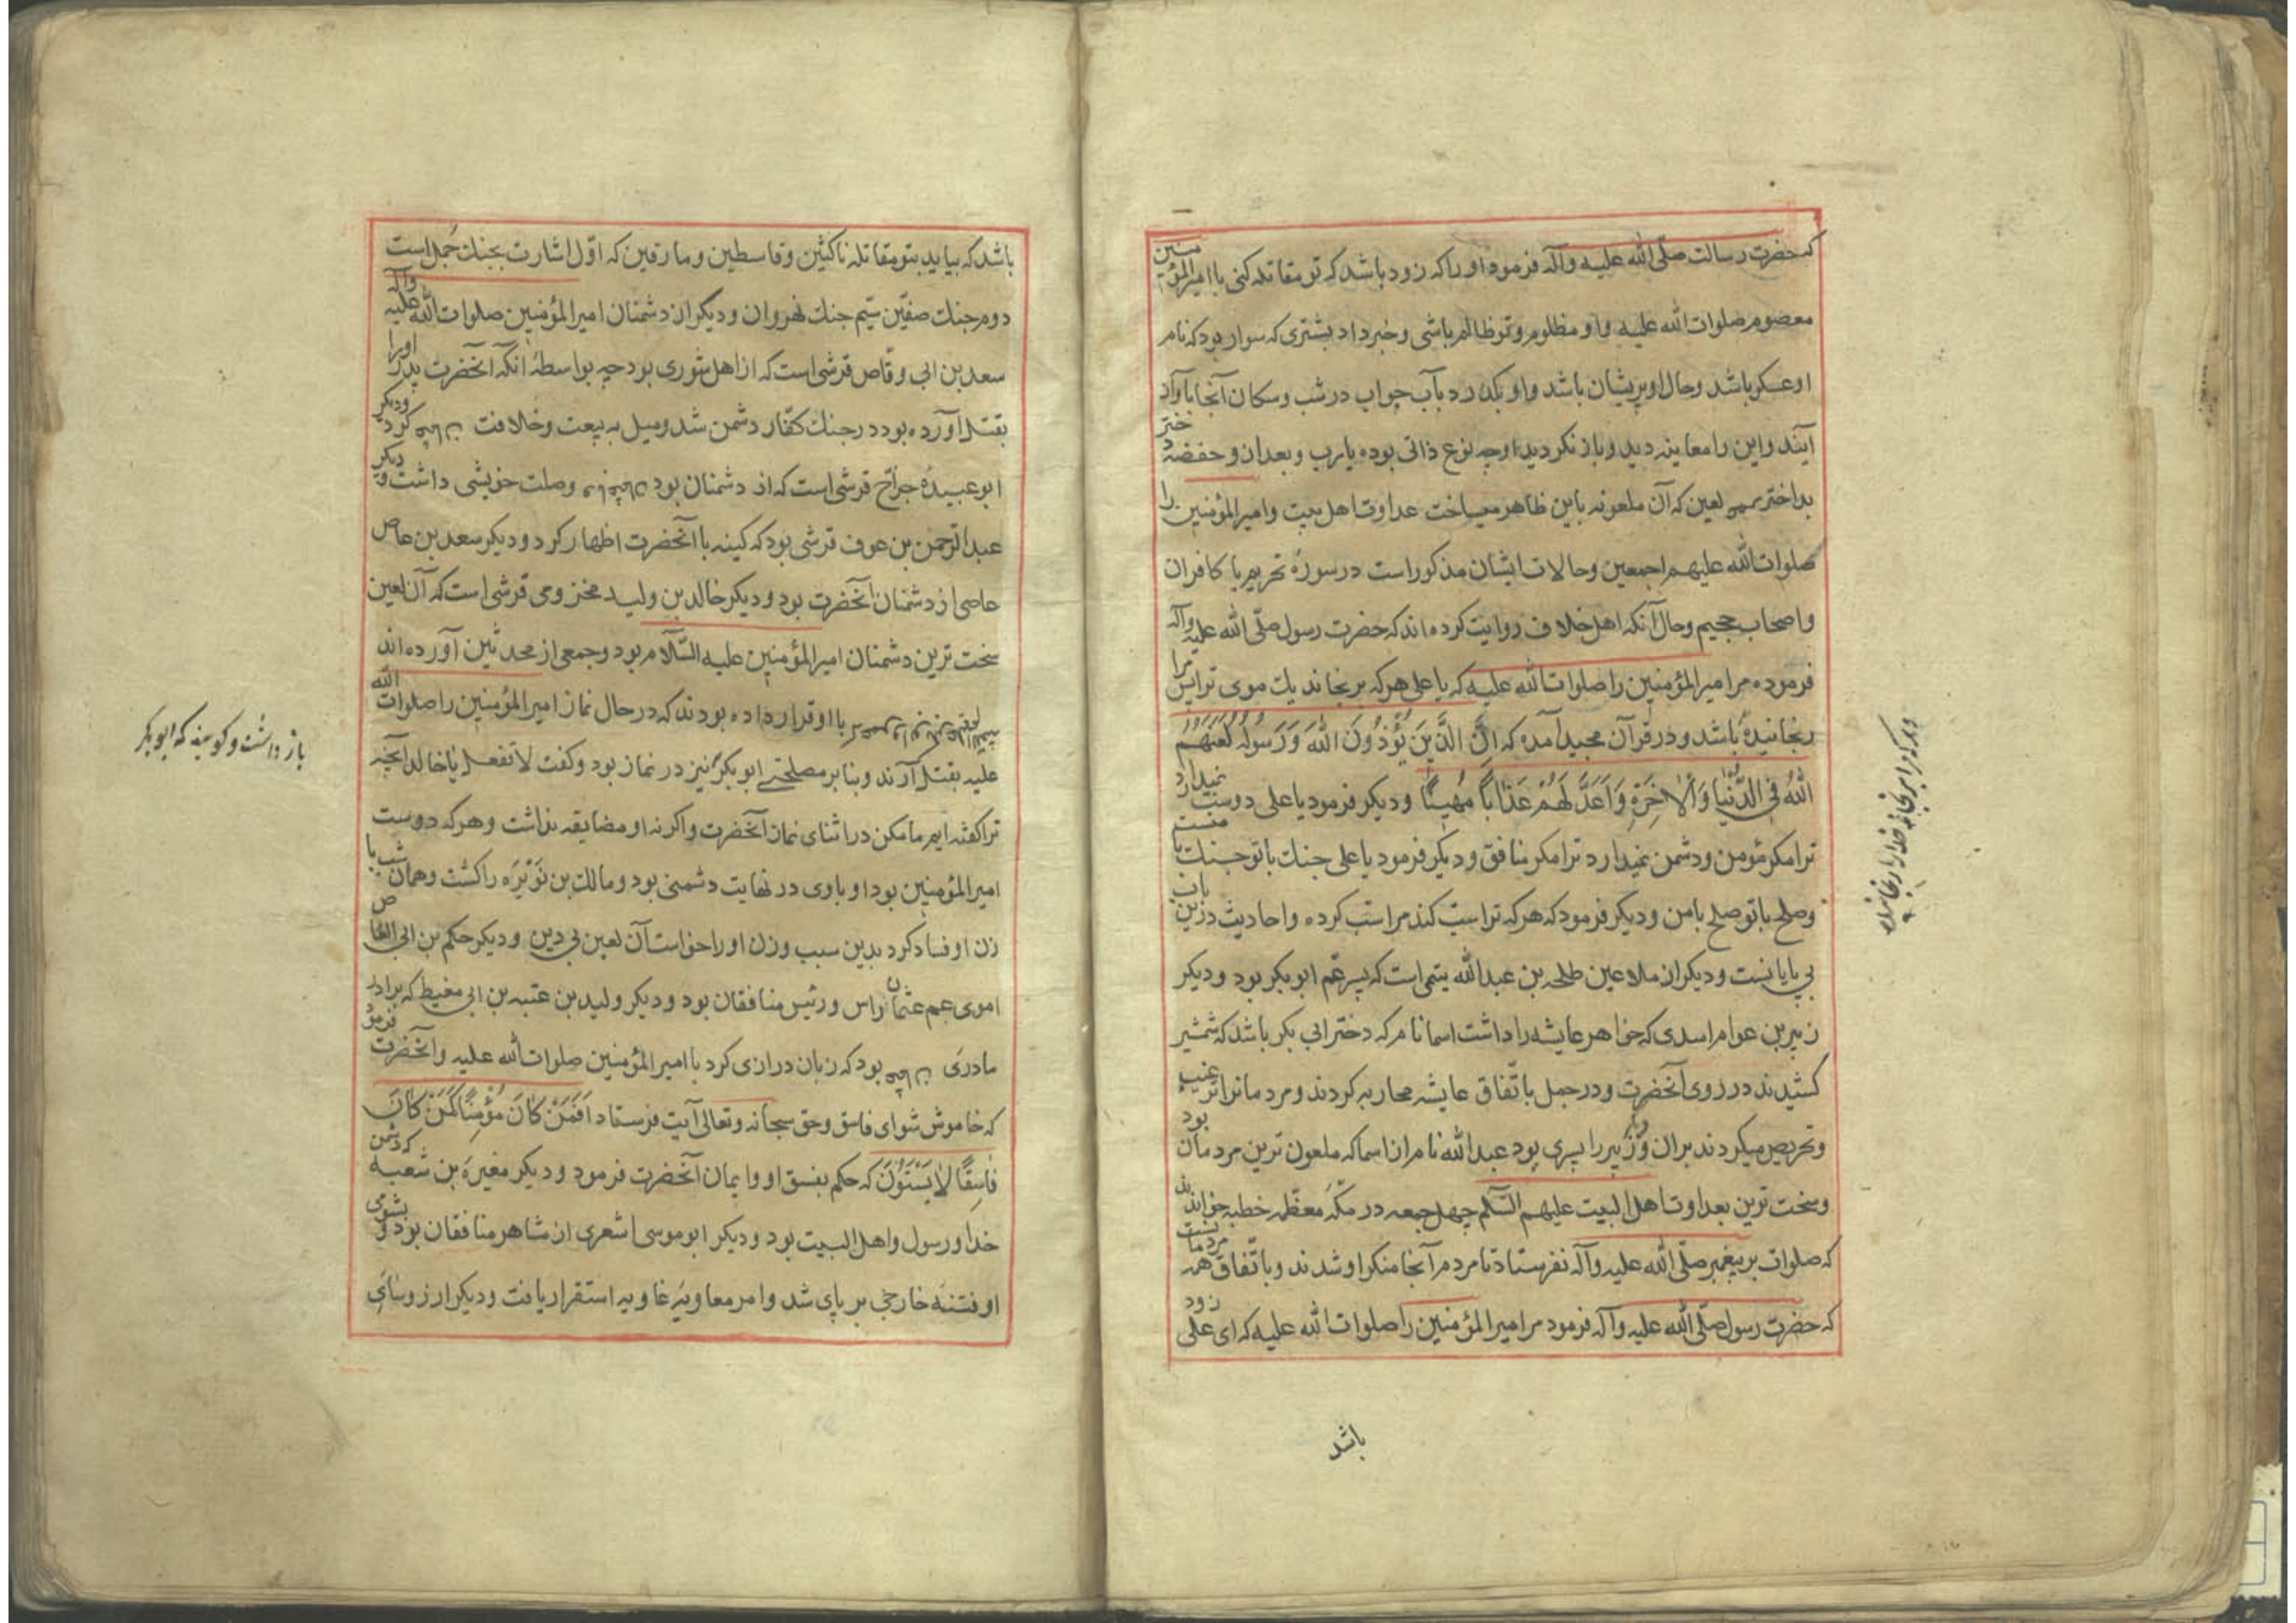 که حضرت رسالت صلّی الله علیه وآله فرمود اورا که زود باشد که تو مقاتله کنی با امیرالمؤمنین
معصوم صلوات الله علیه واو مظلوم وتو ظالم باشی وخبر داد بشتری که سوار بود که نام
او عسکر باشد وحال او پریشان باشد واو بگذرد بآب حواب در شب وسکان آنجا باواز
آیند واین را معاینه دید وباز نکردید اوچه نوع ذاتی بوده یارب وبعد ازو حفضه دختر
بداختر لعین که آن ملعونه باین ظاهر میساخت عداوت اهل بیت وامیرالمؤمنین را
صلوات الله علیهم اجمعین وحالات ایشان مذکور است در سورۀ تحریم با کافران
واصحاب جحیم وحال آنکه اهل خلاف روایت کرده اند که حضرت رسول صلّی الله علیه وآله
فرموده مر امیرالمؤمنین را صلوات الله علیه که یا علی هر که برنجاند یک موی تراپس مرا
رنجانیده باشد ودر قرآن مجید آمده که اِنَّ الَّذینَ یُؤْذُونَ اللّٰهَ وَرَسُولَهُ لَعَنَهُمُ
اللّٰهُ فِی الدُّنْیا وَالْاٰخِرَةِ وَاَعَدَّ لَهُمْ عَذاباً مُهیناً ودیکر فرمود یا علی دوست نمیدارد
ترا مکر مؤمن ودشمن نمیدارد ترا مکر منافق ودیکر فرمود یا علی جنک با تو جنک با منست
وصلح با تو صلح با من ودیکر فرمود که هر که تراست کند مراست کرده واحادیث درین باب
بی پایانست ودیکر از ملاعین طلحه بن عبدالله یتمی است که پسر عم ابوبکر بود ودیکر
زبیر بن عوام اسدی که خواهر عایشه را داشت اسما نام که دختر ابی بکر باشد که شمشیر
کشیدند در روی آنحضرت ودر جمل باتّفاق عایشه محاربه کردند ومردمانرا ترغیب
وتحریص میکردند بران وزبیر را پسری بود عبدالله نام از اسما که ملعون ترین مردمان بود
وسخت ترین بعداوت اهل البیت علیهم السّلم چهل جمعه در مکّه معظّمه خطبه خواندند
که صلوات بر پیغمبر صلّی الله علیه وآله نفرستاد تا مردم آنجا منکر او شدند وباتّفاق همه مردمانست
که حضرت رسول صلّی الله علیه وآله فرمود مر امیرالمؤمنین را صلوات الله علیه که ای علی زود
باشد
باشد که بیاید بتو مقاتله ناکثین وقاسطین ومارقین که اوّل اشارت بجنک جمل است
دوم جنک صفّین سیّم جنک نهروان ودیکر از دشمنان امیرالمؤمنین صلوات الله علیه وآله
سعد بن ابی وقّاص قرشی است که از اهل شوری بود چه بواسطۀ آنکه آنحضرت پدر اورا
بقتل آورده بود در جنک کفّار دشمن شد ومیل به بیعت وخلافت کرد ودیکر
ابو عبیدۀ جرّاح قرشی است که از دشمنان بود وصلت خویشی داشت ودیکر
عبدالرّحمن بن عوف قرشی بود که کینه با آنحضرت اظهار کرد ودیکر سعد بن عاص
عاصی از دشمنان آنحضرت بود ودیکر خالد بن ولید مخزومی قرشی است که آن لعین
سخت ترین دشمنان امیرالمؤمنین علیه السّلام بود وجمعی از محدثین آورده اند
با او قرار داده بودند که در حال نماز امیرالمؤمنین را صلوات الله
علیه بقتل آرند وبنا بر مصلحتی ابوبکر نیز در نماز بود وکفت لا تفعل یا خالد آنچه
ترا کفته ایم ما مکن در اثنای نماز آنحضرت واکر نه او مضایقه نداشت وهر که دوست
امیرالمؤمنین بود او باوی در نهایت دشمنی بود ومالک بن نویره را کشت وهمان شب با
زن او فساد کرد بدین سبب وزن اورا خواست آن لعین بی دین ودیکر حکم بن ابی العاص
اموی عم عثمان راس ورئیس منافقان بود ودیکر ولید بن عتبه بن ابی مغیط که برادر
مادری بود که زبان درازی کرد با امیرالمؤمنین صلوات الله علیه وآنحضرت فرمود
که خاموش شو ای فاسق وحق سبحانه وتعالی آیت فرستاد اَفَمَنْ کانَ مُؤْمِناً کَمَنْ کانَ
فاسِقاً لا یَسْتَوُنَ که حکم بفسق او وایمان آنحضرت فرمود ودیکر مغیرة بن شعبه که دشمن
خدا ورسول واهل البیت بود ودیکر ابوموسی اشعری از مشاهر منافقان بود وبشومی
او فتنۀ خارجی بر پای شد وامر معاویۀ غاویه استقرار یافت ودیکر از روسای
باز داشت وکویند که ابوبکر